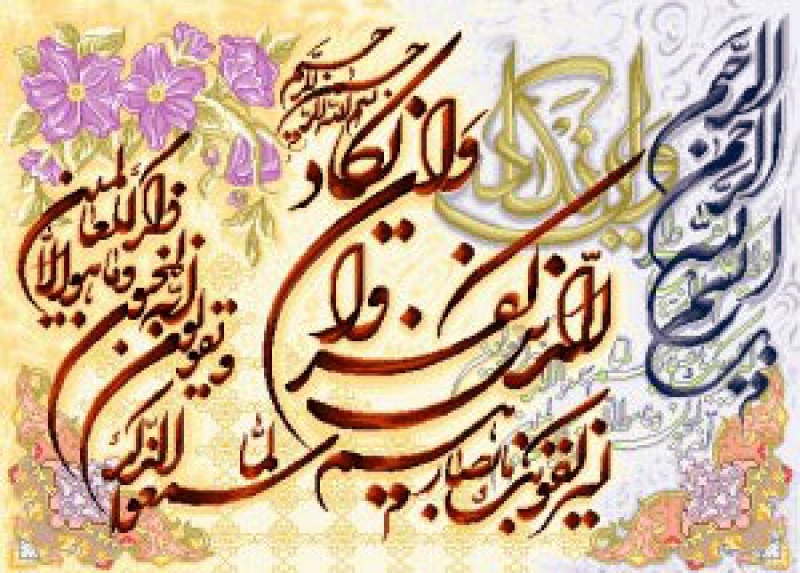 بسم الله الرحمن الرحیم
وان یکاد
بسم الله الرحمن الرحیم
وان یکاد
الذین کفروا
لیزلقونک بابصارهم
لما سمعوا الذکر
ویقولون
انه لمجنون
وما هو الا
ذکر للعالمین